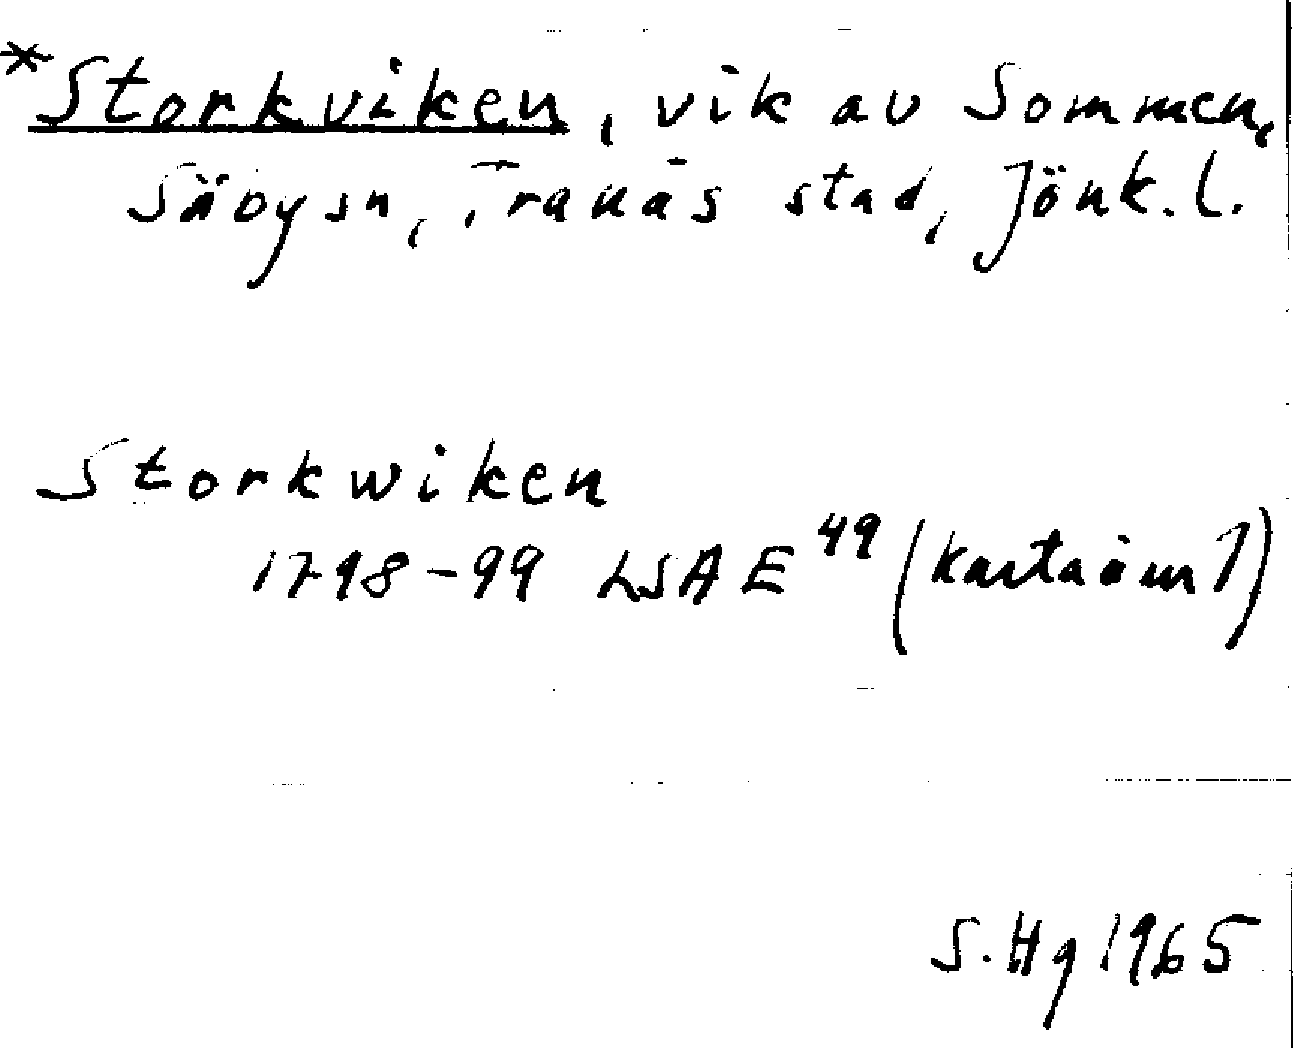 *Storkviken, vik av Sommen,
Säbysn, Tranås stad, Jönk. l.
Storkwiken
1798-99 LSA E 49 (Karta äm 1)
S. Hg 1965